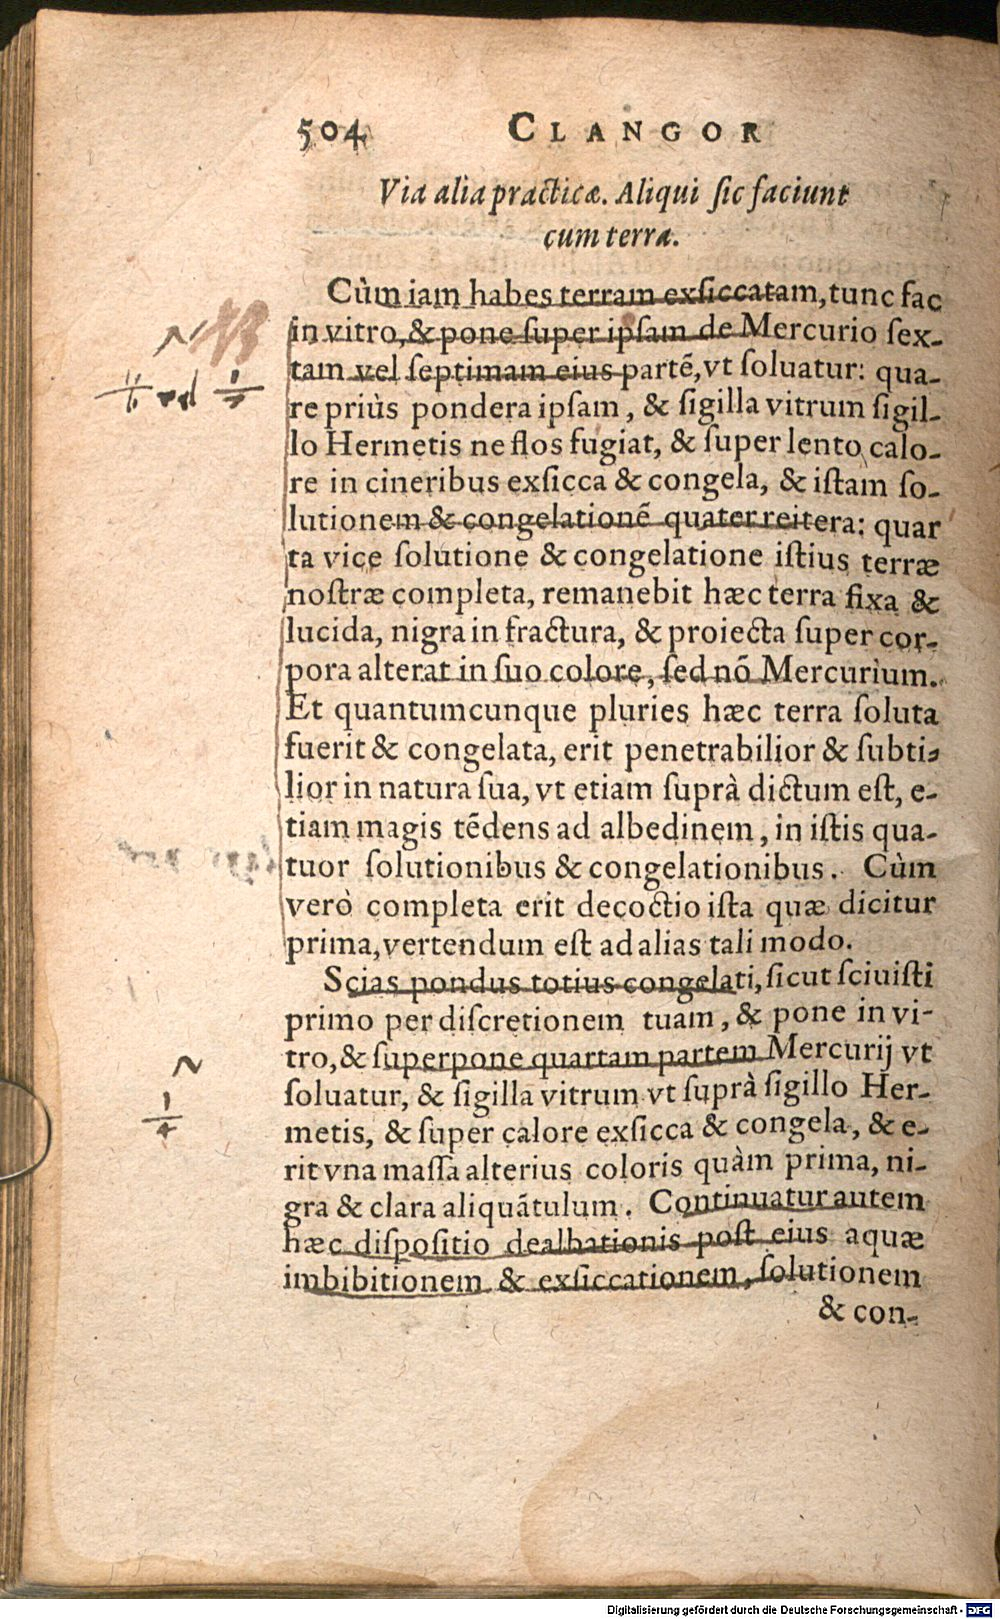 504 CLANGOR
Via alia practicæ. Aliqui ſic faciunt
cum terra.
Cùm iam habes terram exſiccatam, tunc fac
in vitro, & pone ſuper ipſam de Mercurio ſex-
tam vel ſeptimam eius partē, vt ſoluatur: qua-
re priùs pondera ipſam, & ſigilla vitrum ſigil-
lo Hermetis ne flos fugiat, & ſuper lento calo-
re in cineribus exſicca & congela, & iſtam ſo-
lutionem & congelationē quater reitera: quar
ta vice ſolutione & congelatione iſtius terræ
noſtræ completa, remanebit hæc terra fixa &
lucida, nigra in fractura, & proiecta ſuper cor-
pora alterat in ſuo colore, ſed nō Mercurium.
Et quantumcunque pluries hæc terra ſoluta
fuerit & congelata, erit penetrabilior & ſubti-
lior in natura ſua, vt etiam ſuprà dictum eſt, e-
tiam magis tēdens ad albedinem, in iſtis qua-
tuor ſolutionibus & congelationibus. Cùm
verò completa erit decoctio iſta quæ dicitur
prima, vertendum eſt ad alias tali modo.
Scias pondus totius congelati, ſicut ſciuiſti
primo per diſcretionem tuam, & pone in vi-
tro, & ſuperpone quartam partem Mercurij vt
ſoluatur, & ſigilla vitrum vt ſuprà ſigillo Her-
metis, & ſuper calore exſicca & congela, & e-
rit vna maſſa alterius coloris quàm prima, ni-
gra & clara aliquātulum. Continuatur autem
hæc diſpoſitio dealbationis poſt eius aquæ
imbibitionem & exſiccationem, ſolutionem
& con-
1/4
Digitalisierung gefördert durch die Deutsche Forschungsgemeinschaft - DFG